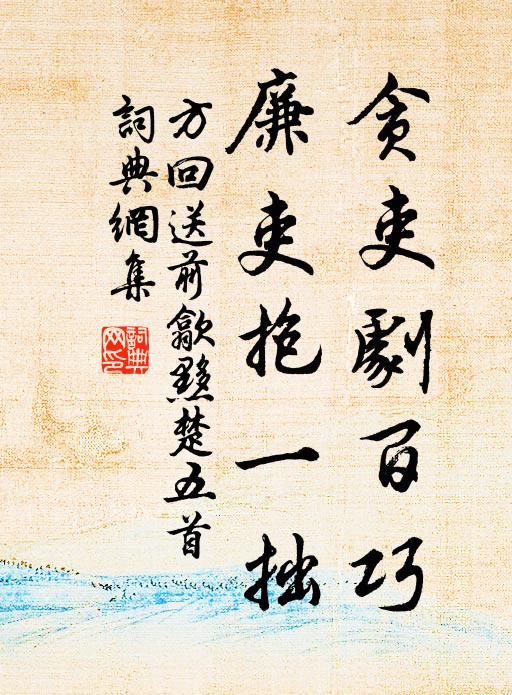 貪吏劇百巧
廉吏抱一拙
方回送前歙黟楚五首
詞典網集
詞典網印